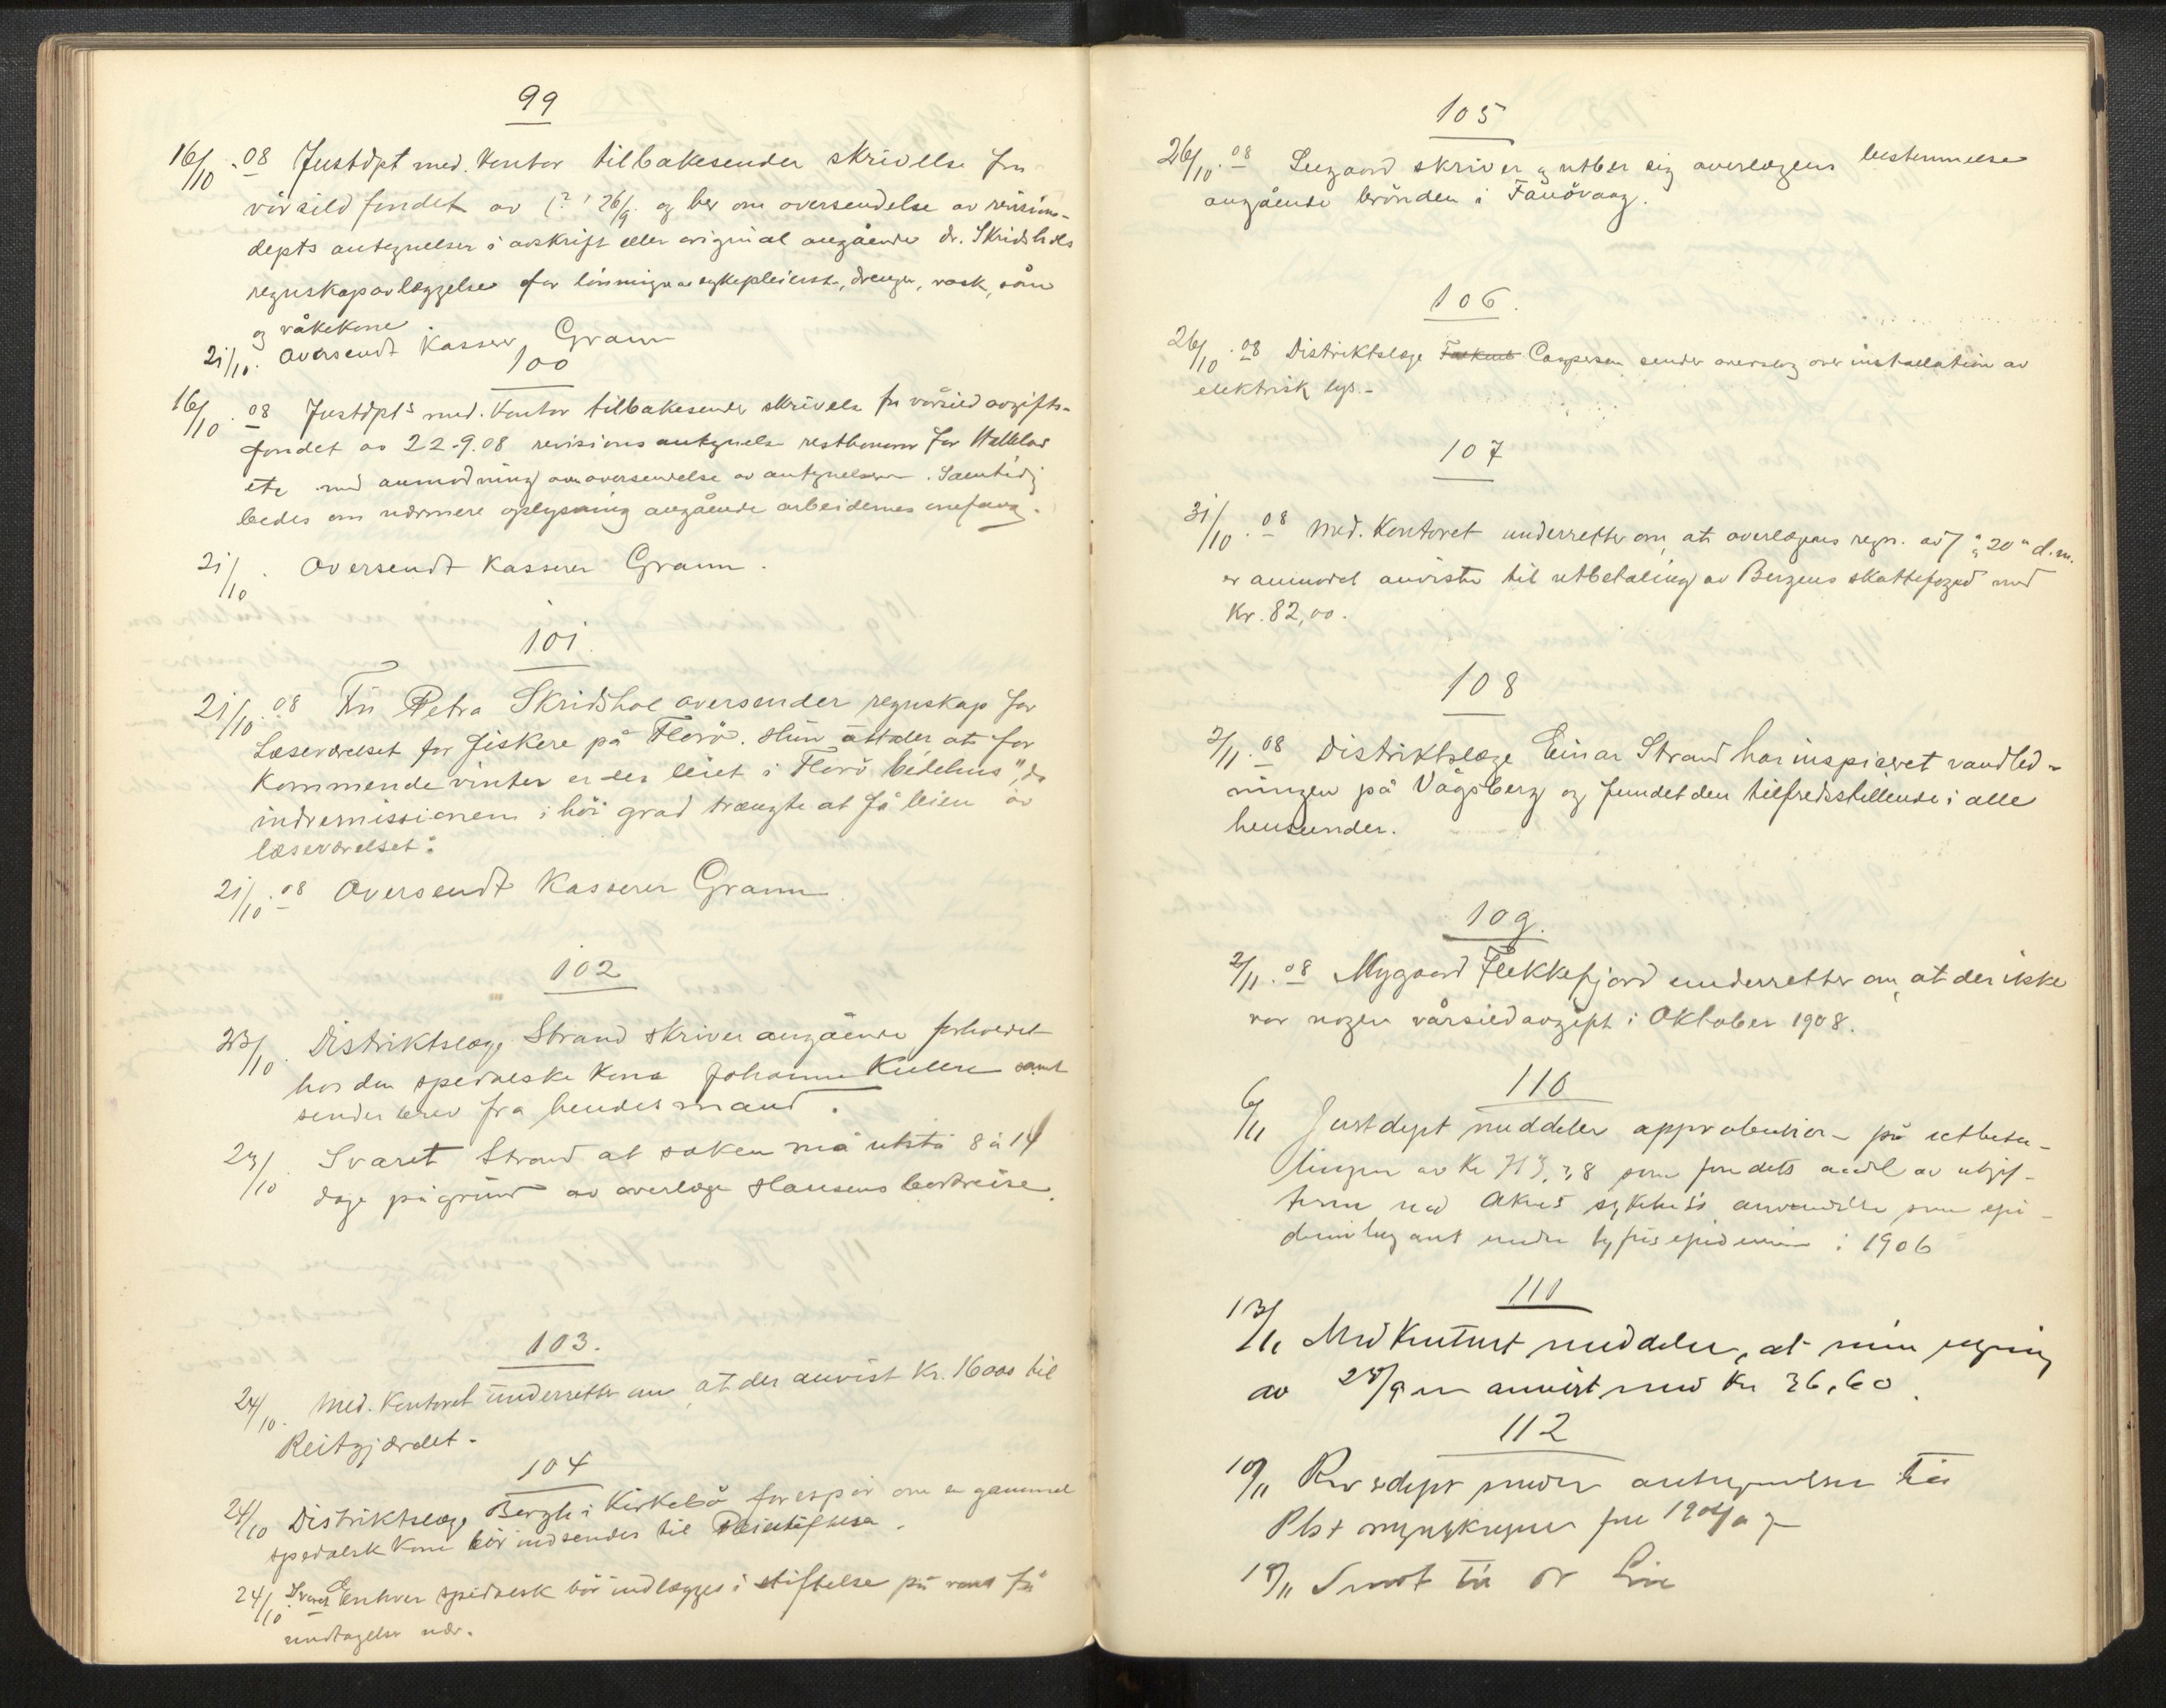 99
16/10.08 Justdpt med. Kontor tilbakesender skrivelse fra
vårsildfondet av (?) 26/9. og ber om oversendelse av revisions-
depts antegnelser i avskrift eller original angående dr. Skridshols
regnskapsavlæggelse for lönninger sykepleierske, drenger, vask, 
og våkekone.
21/10. Oversendt Kasserer Gram
100
16/10.08 Justdpts med. Kontor tilbakesender skrivelse fra vårsildavgifts-
fondet av 22-9.08 revisionsantegnelse resthonorar for 
etc med anmodning om oversendelse av antegnelserne. Samtidig
bedes om nærmere oplysning angående arbeidernes omfang.
21/10. Oversendt Kasserer Gram.
101.
21/10.08 Frk Petra Skridshol oversender regnskap for
Læseværelset for fiskere på Florö. Hun uttaler at for
kommende vinter er der leiet i Florö bedehus", da
indremissionen i höi grad trængte at få leien av
læseværelset".
21/10.08 Oversendt Kasserer Gram.
102
23/10. Distriktslæge Strand skriver angående forholdet
hos den spedalske kone Johanne samt
sender brev fra hendes mand.
23/10. Svaret Strand at saken må utstå 8 à 14
dage på grund av overlæge Hansens bortreise.
103.
24/10. Med. Kontoret underretter om, at der anvist Kr. 16000 til
Reitgjærdet.
104
24/10 Distriktslæge Bergh i Kirkebö forespör om en gammel
spedalsk kone bör indsendes til Pleiestiftelsen.
24/10. Svaret Enhver spedalsk bör indlægges i stiftelse på 
undtagelse nær.
105
26/10.08 Seegaard skriver og utber sig overlægens bestemmelse
angående brönden i Fånövaag.
106.
26/10.08 Distriktslæge Caspersen sender overslag over installation av
elektrisk lys.-
107
31/10.08 Med. Kontoret underretter om, at overlægens regn. av 7 & 20 d.m.
er anmodet anviste til utbetaling av Bergens skattefoged med
Kr. 82,00.
108
2/11.08 Distriktslæge Einar Strand har inspiceret vandled-
ningen på Vågsberg og fundet den tilfredsstillende i alle
henseender.
109.
2/11.08 Nygaard Flekkefjord underretter om, at der ikke
var nogen vårsildavgift i Oktober 1908.
110
6/11 Justdept meddeler approbation på utbeta-
lingen av Kr som fondets andel av utgif-
terne ved sykehus anvendelse som epi-
demilazaret under tyfusepidemien i 1906
111
13/11 Medkontoret meddeler, at min regning
av 28/9 er anvist med Kr 36,60.
112
10/11 Revsdept sender antegnelser til
 for 1904/07
18/11 Sendt til Dr Lie